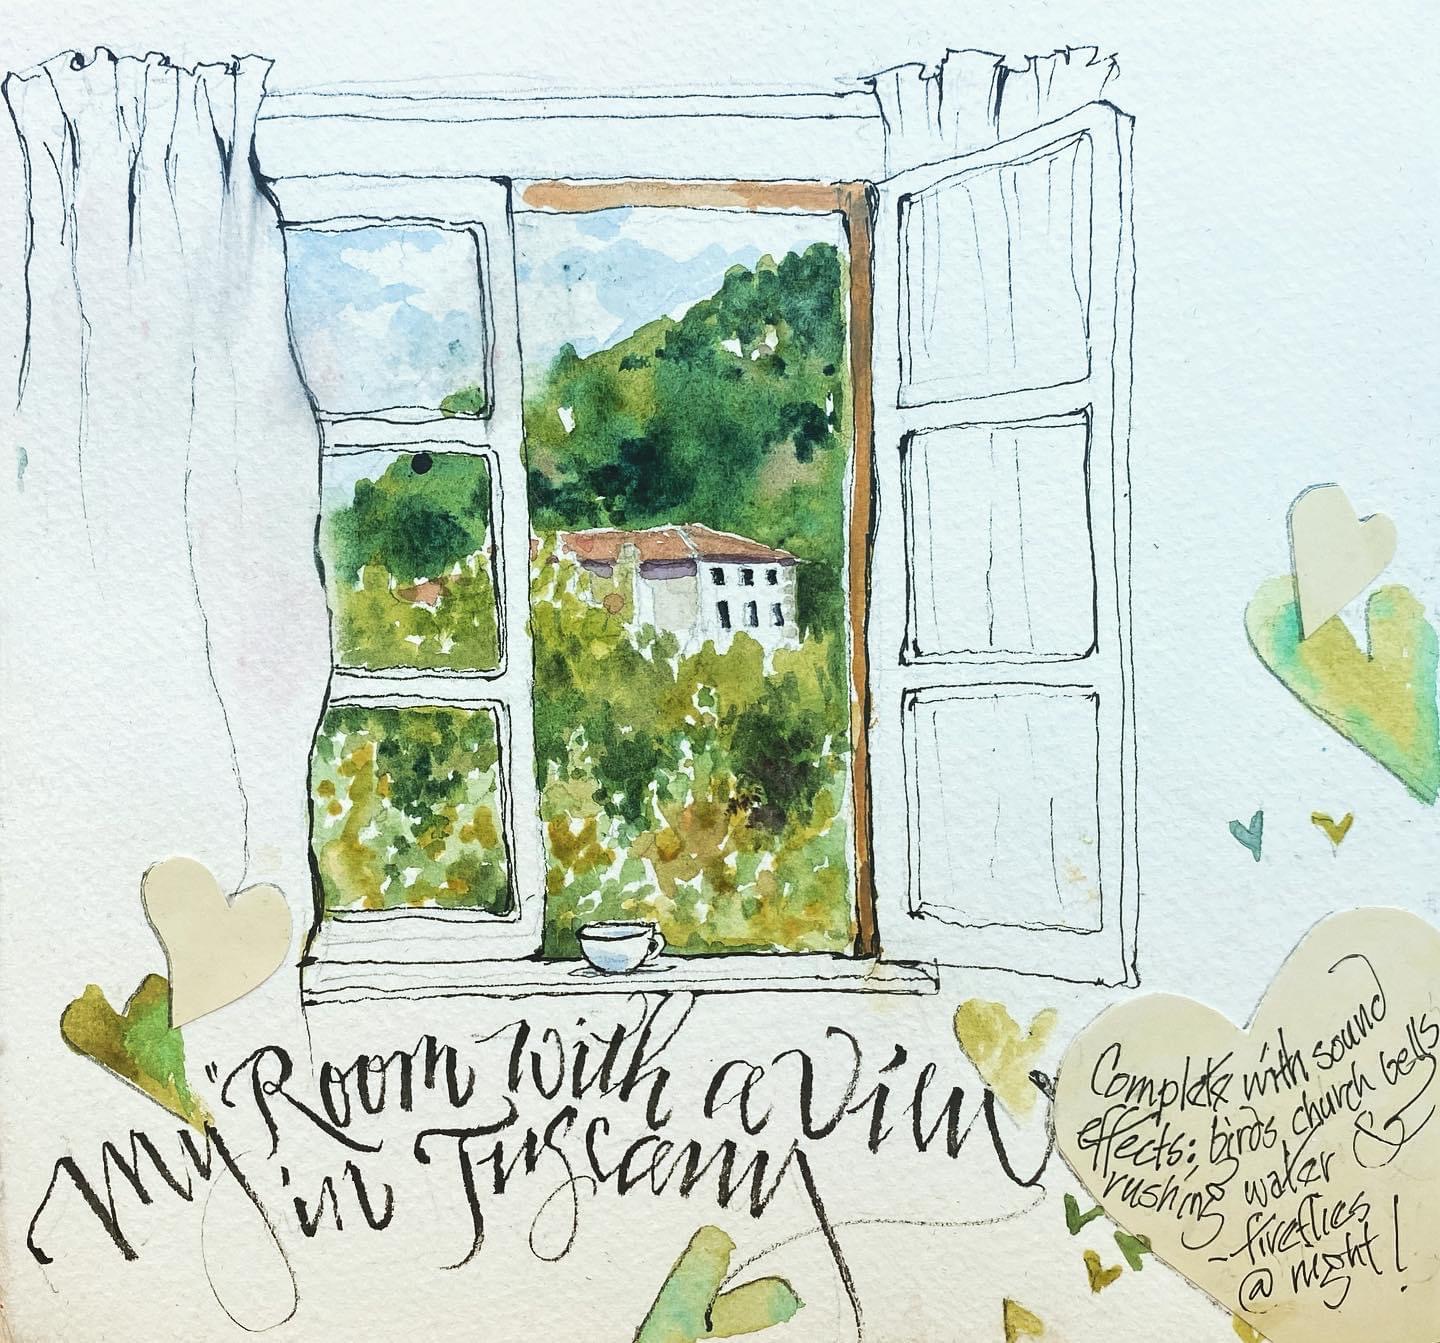 My "Room with a View
in Tuscany
Complete with sound
effects: birds church bells
rushing water &
- fireflies
@ night!